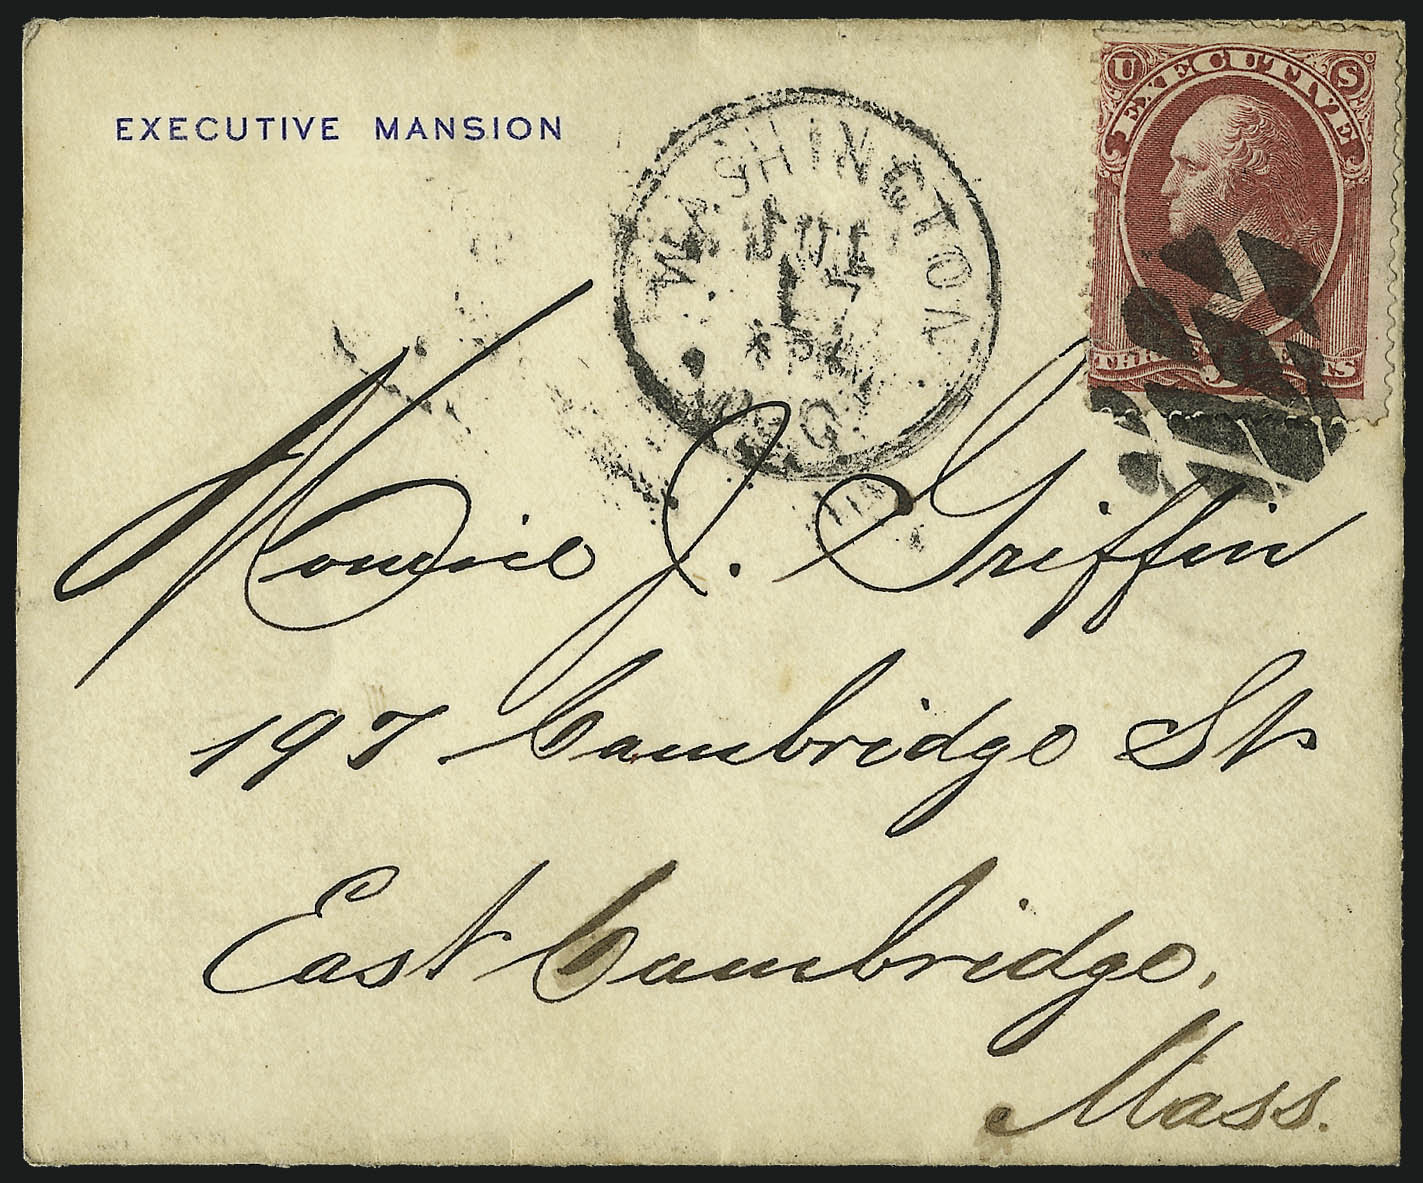 EXECUTIVE MANSION
WASHINGTON
JUL
D.C.
U S
EXECUTIVE
THREE CENTS
J. Griffin
197 Cambridge St
East Cambridge,
Mass.